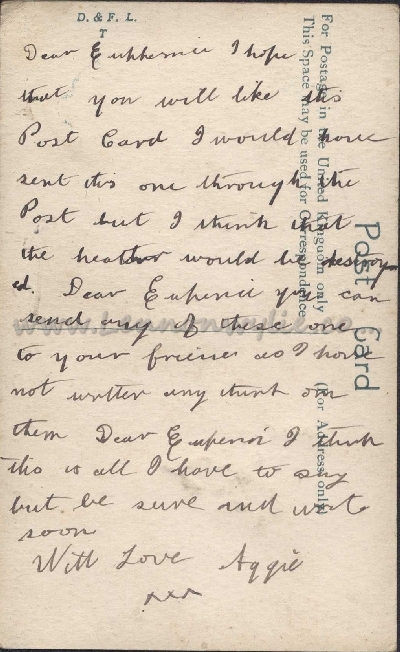 D. & F. L.
T
Dear Euphemia I hope
that you will like this
Post Card I would have
sent this one through the
Post but I think that
the heather would be destroy
ed. Dear Eupenia you can
send any of these one
to your friends as I have
not written any think on
them Dear Eupenia I think
this is all I have to say
but be sure and write
soon
With Love Aggie
xxx
Post Card
For Postage in the United Kingdom only
This Space may be used for Correspondence
(For Address only)